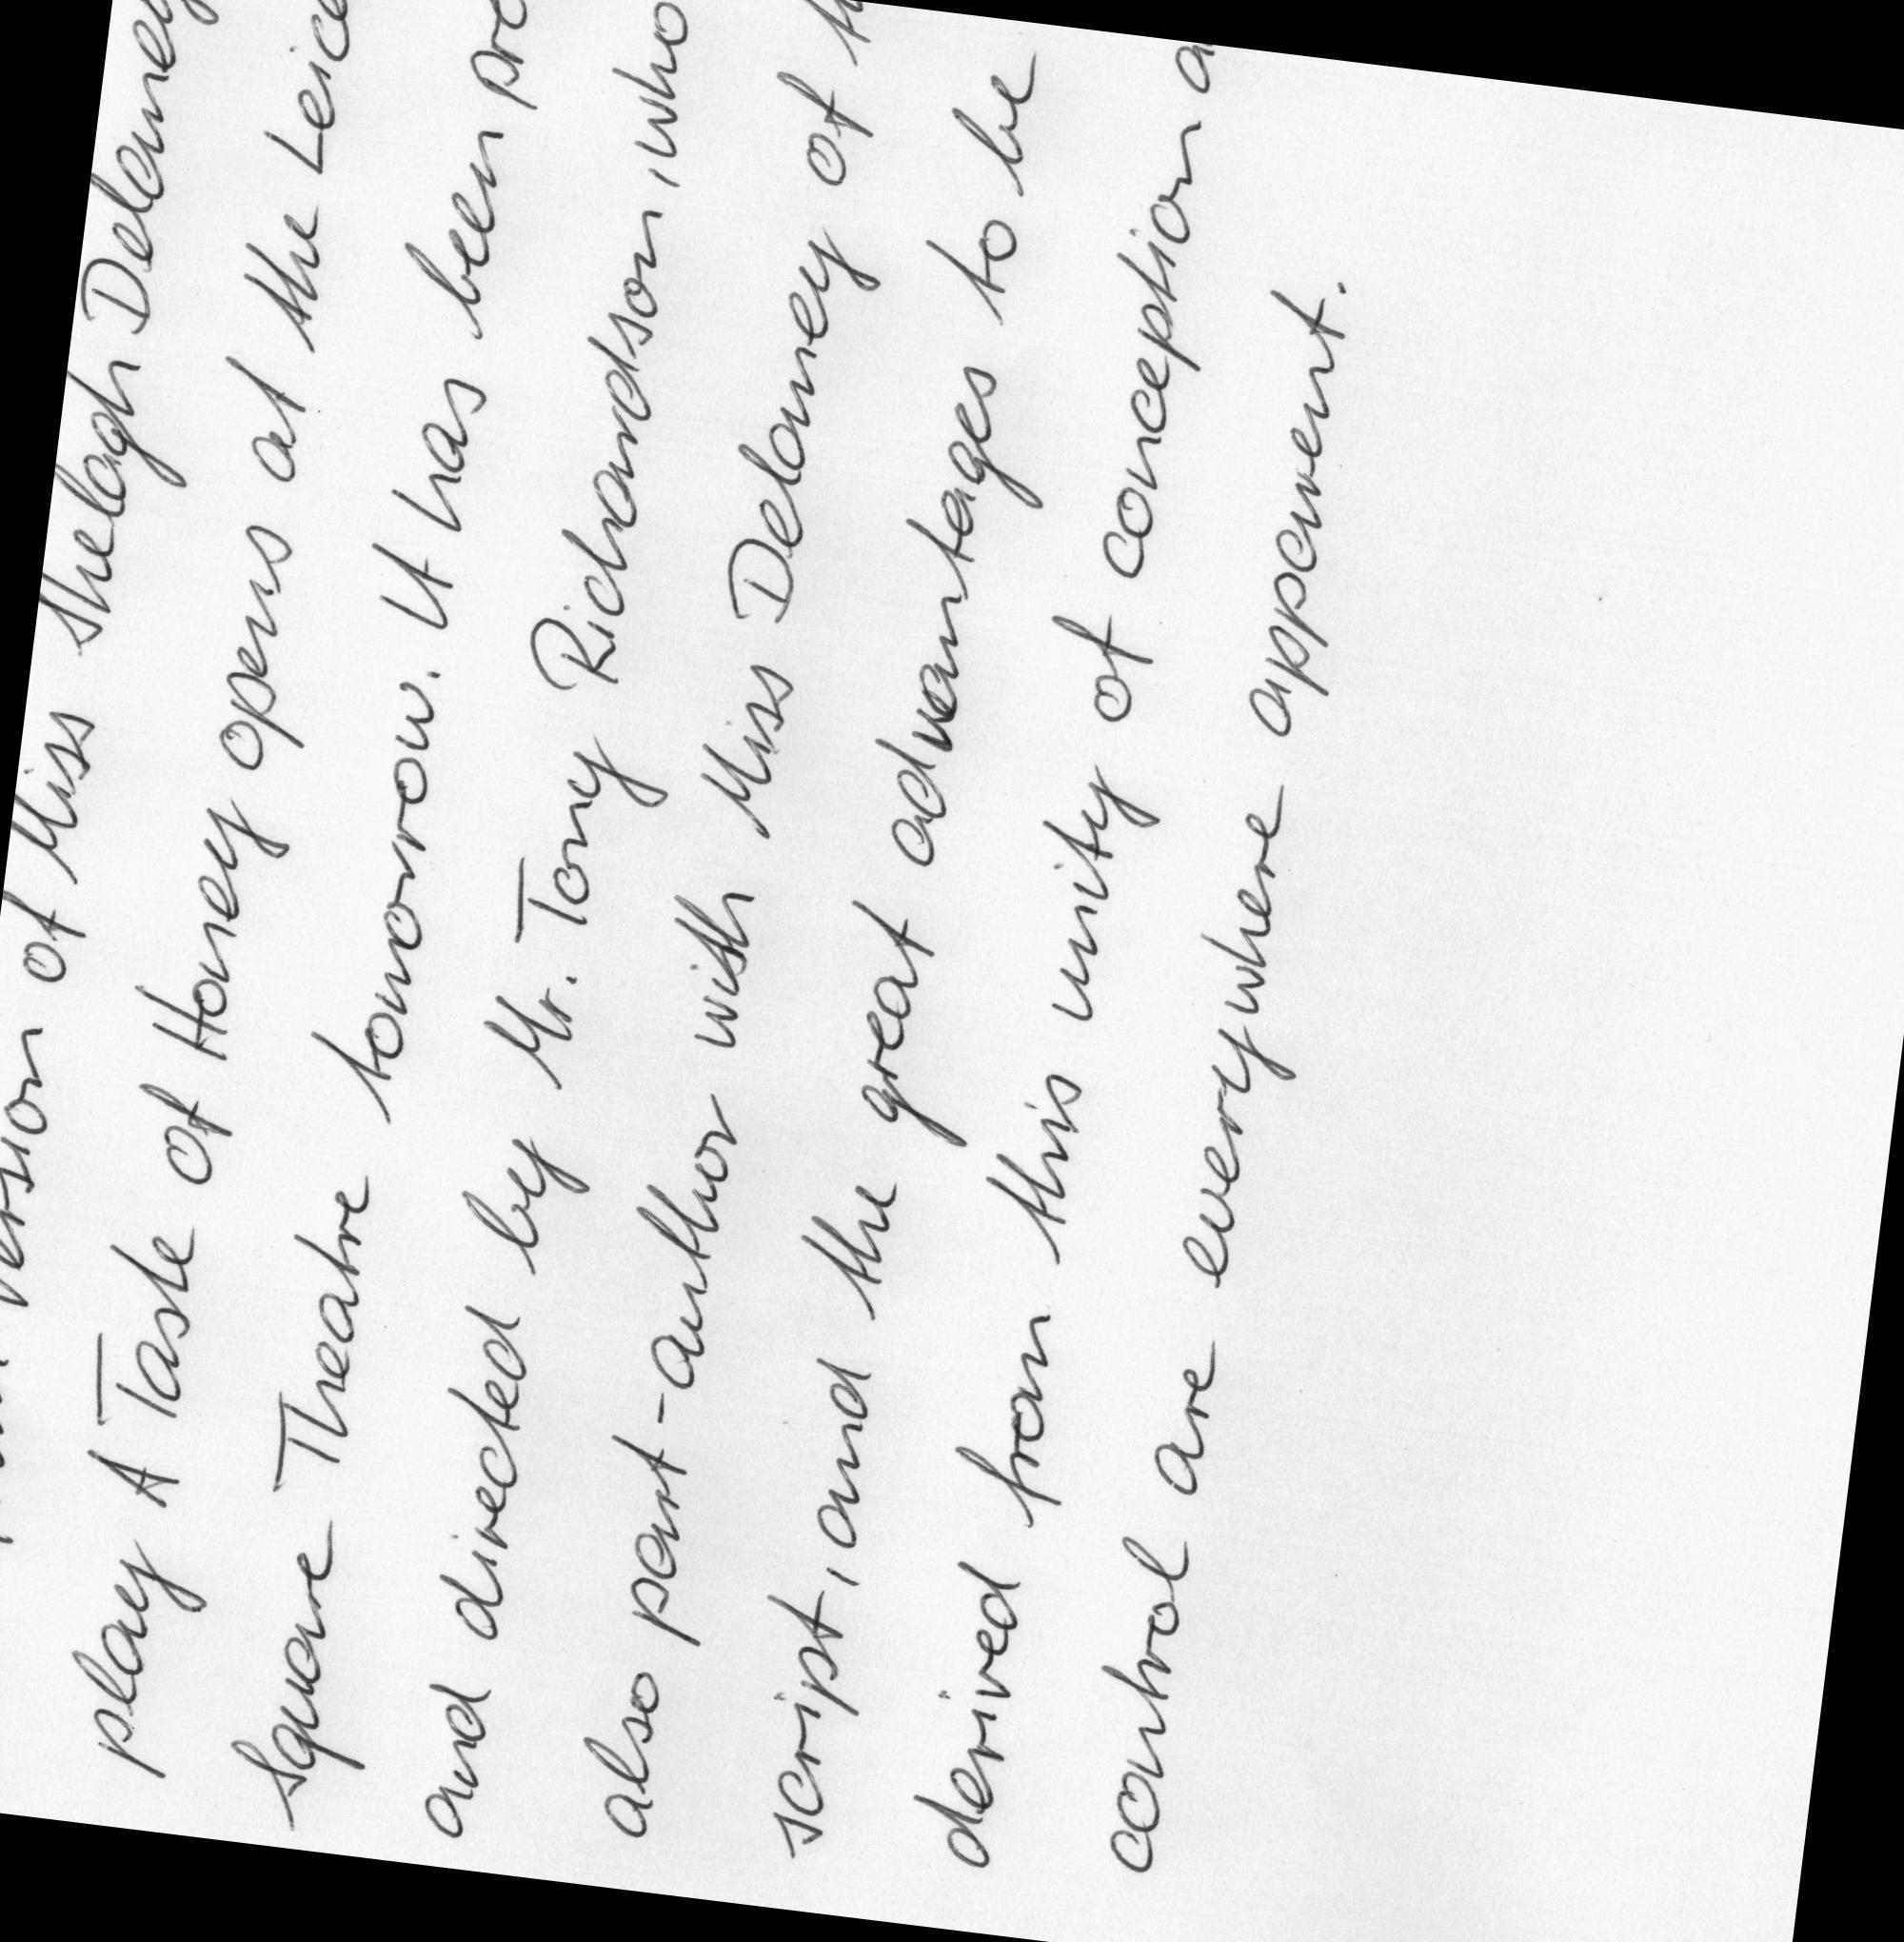 version of Miss Shelagh Delaney
play A Taste of Honey opens at the Leice
Square Theatre tomorrow. It has been pro
and directed by Mr. Tony Richardson, who
also part-author with Miss Delaney of th
script, and the great advantages to be
derived from this unity of conception a
control are everywhere apparent.